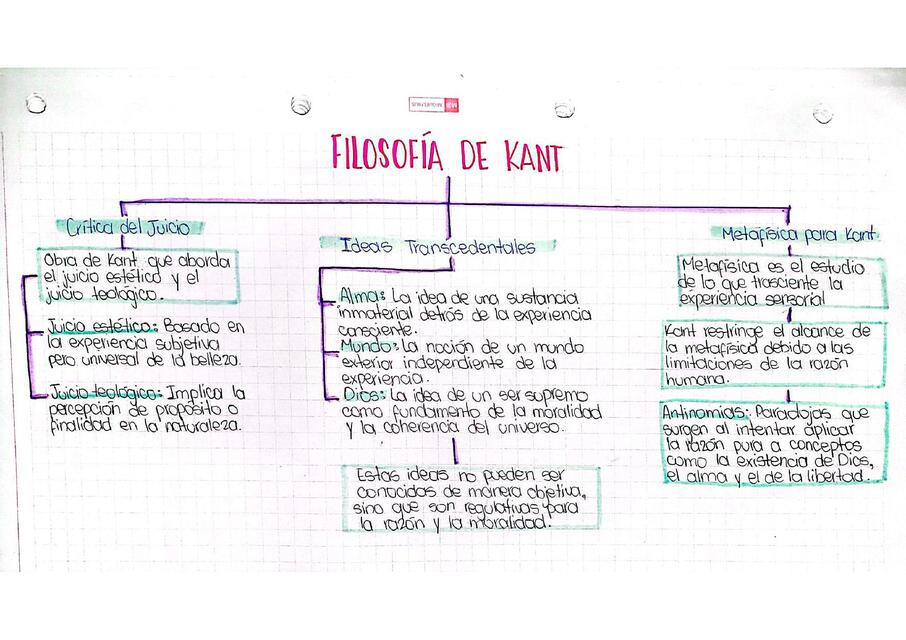 FILOSOFÍA DE KANT
Crítica del Juicio
Obra de Kant que aborda
el juicio estético y el
juicio teológico.
Juicio estético: Basado en
la experiencia subjetiva
pero universal de la belleza.
Juicio teológico: Implica la
percepción de propósito o
finalidad en la naturaleza.
Ideas Transcedentales
Alma: La idea de una sustancia
inmaterial detrás de la experiencia
consciente.
Mundo: La noción de un mundo
exterior independiente de la
experiencia.
Dios: La idea de un ser supremo
como fundamento de la moralidad
y la coherencia del universo.
Estas ideas no pueden ser
conocidas de manera objetiva,
sino que son regulativas para
la razón y la moralidad.
Metafísica para Kant.
Metafísica es el estudio
de lo que trasciente la
experiencia sensorial
Kant restringe el alcance de
la metafísica debido a las
limitaciones de la razón
humana.
Antinomias: Paradojas que
surgen al intentar aplicar
la razón pura a conceptos
como la existencia de Dios,
el alma y el de la libertad.